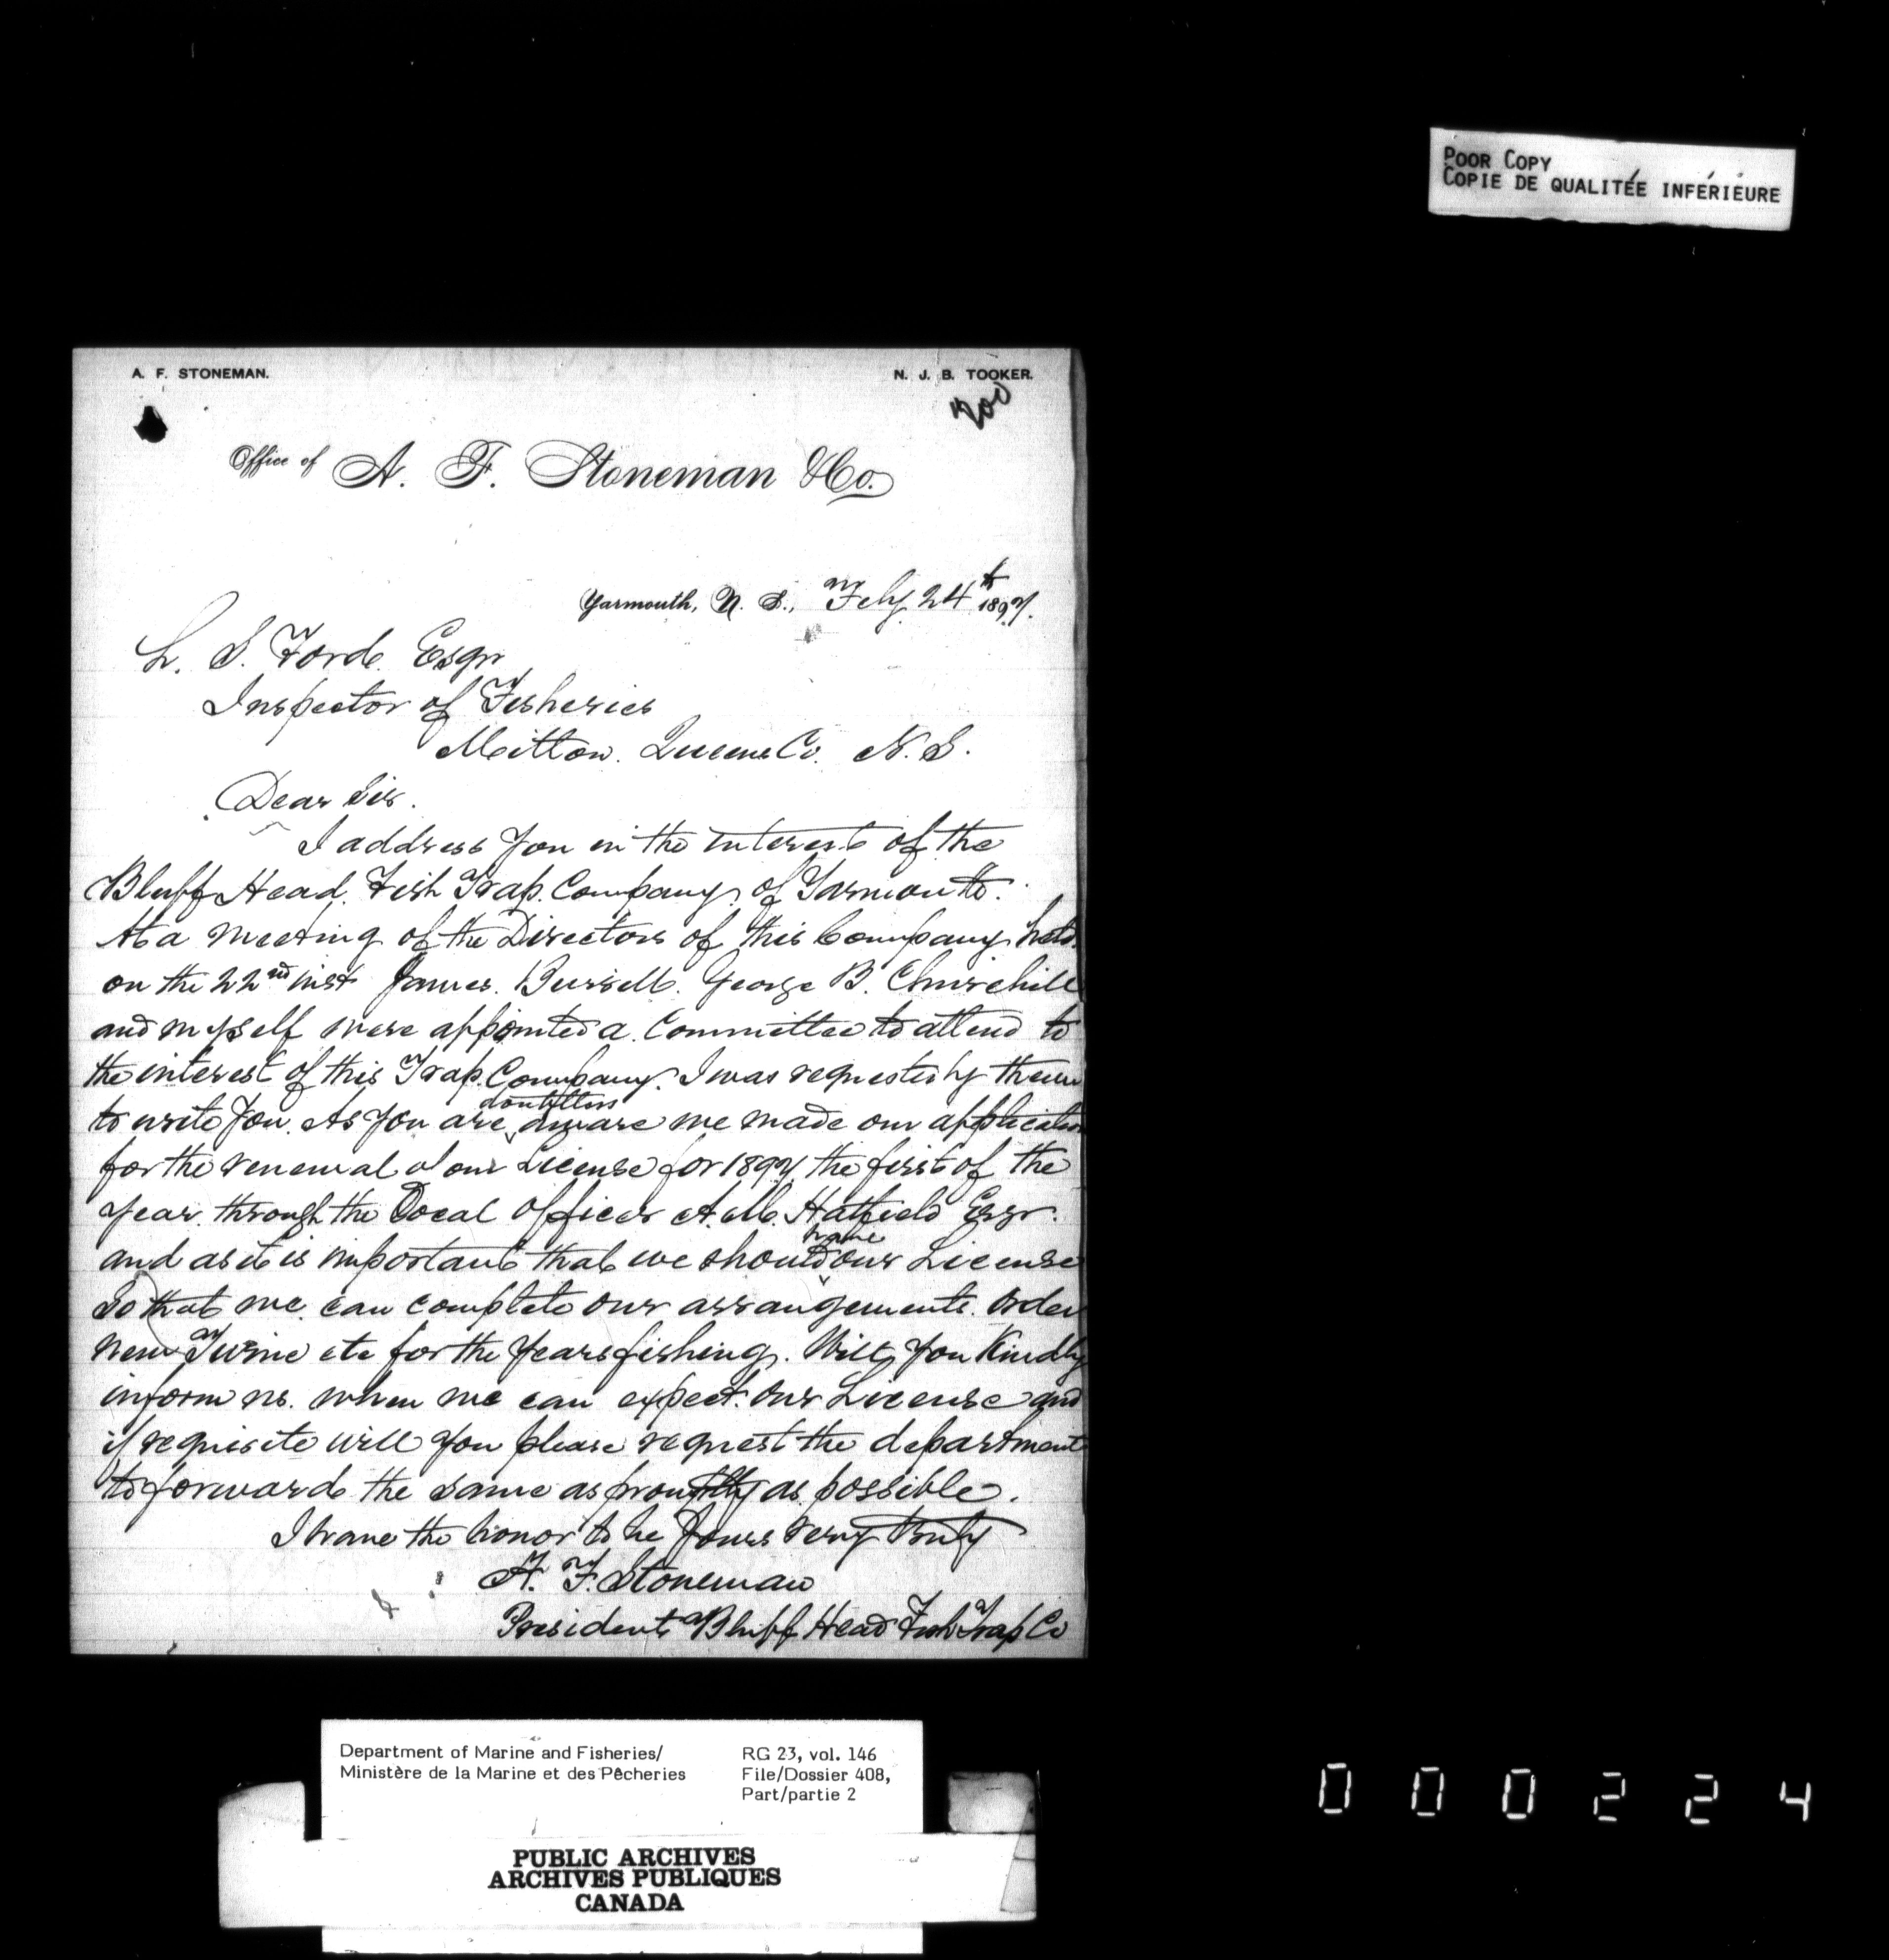 POOR COPY
COPIE DE QUALITÉE INFÉRIEURE
A. F. STONEMAN.
N. J. B. TOOKER.
200
Office of A. F. Stoneman & Co.
Yarmouth, N. S., Feby. 24th 1897.
L. S. Ford. Esqr
Inspector of Fisheries
Milton. Queens Co. N. S.
Dear Sir.
I address you in the interest of the
Bluff Head. Fish Trap. Company. of Yarmouth.
At a meeting of the Directors of this Company held
on the 22nd inst James. Burrell. George B. Churchill
and myself were appointed a Committee to attend to
the interest of this Trap. Company. I was requested by them
doubtless
to write you. As you are, aware we made our application
for the renewal of our License for 1897 the first of the
year. through the Local Officer A. M. Hatfield Esqr.
have
and as it is important that we should our License
So that we can complete our arrangements. order
new Twine etc for the years fishing. Will you Kindly
inform us. when we can expect. our License and
if requisite will you please request the department
to forward the same as promptly as possible.
I have the honor to be Yours very truly
A. F. Stoneman
President Bluff Head Fish Trap Co
Department of Marine and Fisheries/
Ministère de la Marine et des Pêcheries
RG 23, vol. 146
File/Dossier 408,
Part/partie 2
PUBLIC ARCHIVES
ARCHIVES PUBLIQUES
CANADA
000224